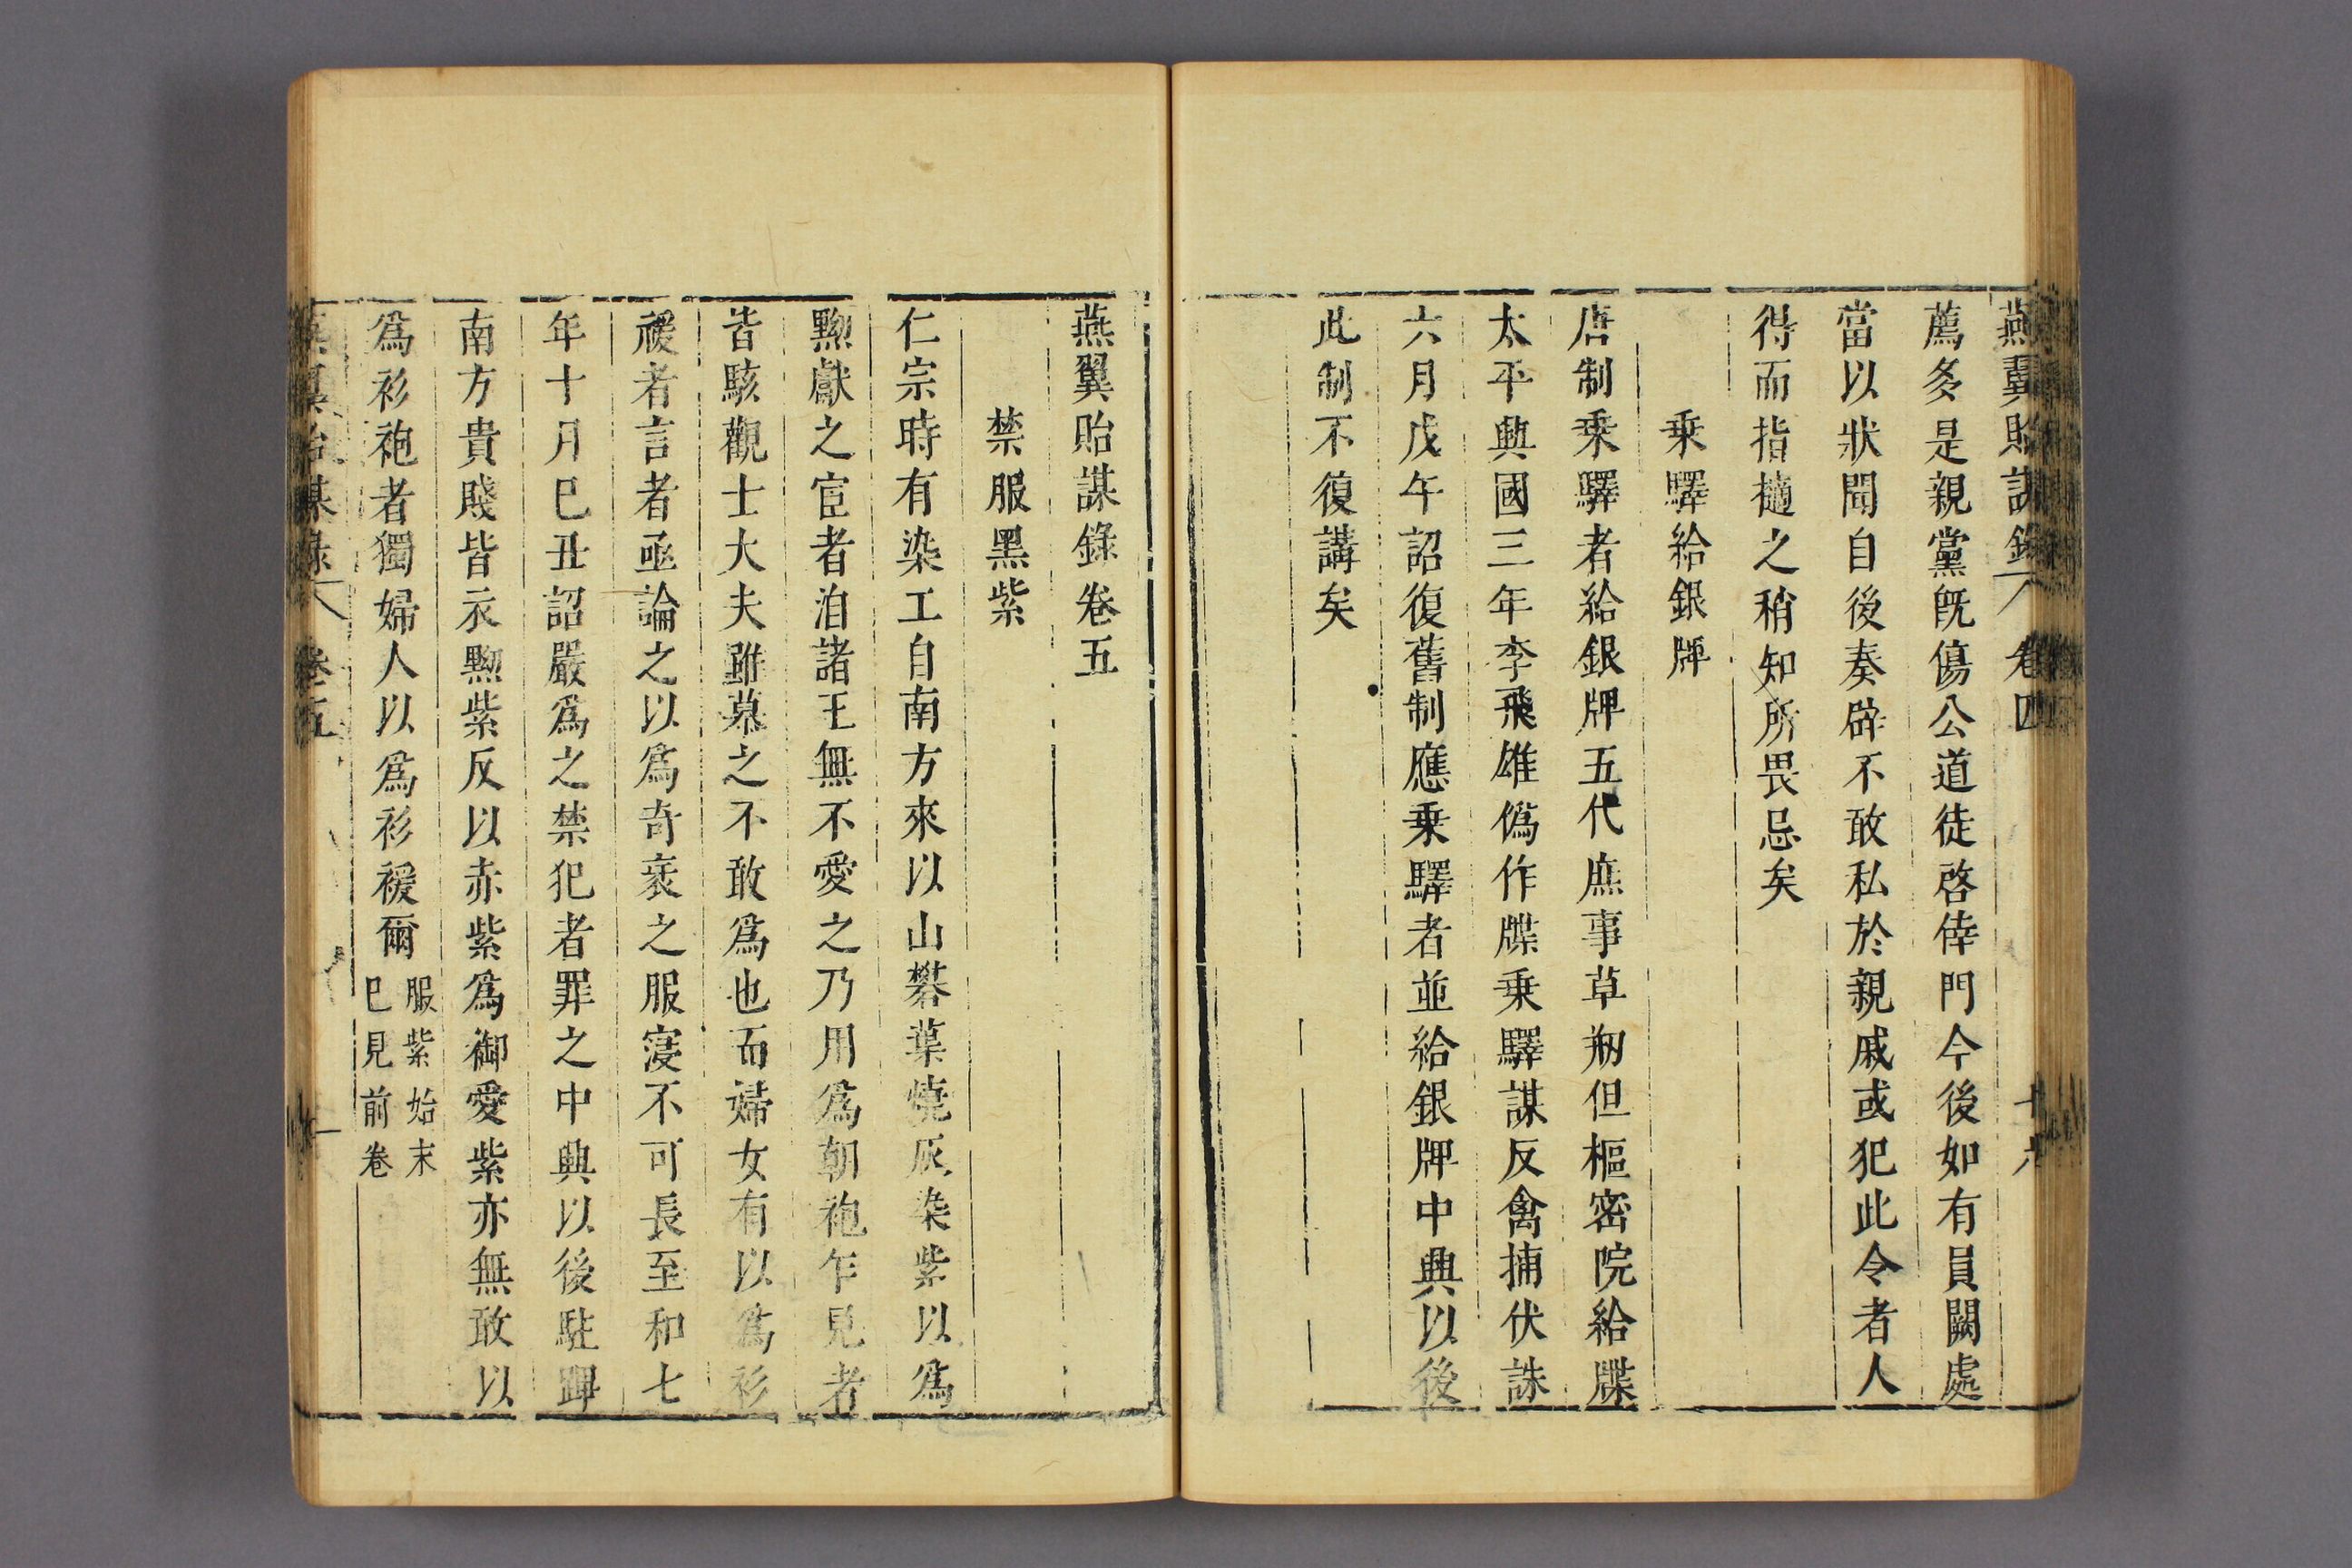 燕翼貽謀錄 卷四 十六
薦多是親黨旣傷公道徒啓倖門今後如有員闕處
當以狀聞自後奏辟不敢私於親戚或犯此令者人
得而指擿之稍知所畏忌矣
乗驛給銀牌
唐制乗驛者給銀牌五代庶事草剏但樞密院給牒
太平興國三年李飛雄僞作牒乗驛謀反禽捕伏誅
六月戊午詔復舊制應乗驛者並給銀牌中興以後
此制不復講矣
燕翼貽謀錄卷五
禁服黑紫
仁宗時有染工自南方來以山礬葉燒灰染紫以爲
黝獻之宦者洎諸王無不愛之乃用爲朝袍乍見者
皆駭觀士大夫雖慕之不敢爲也而婦女有以爲衫
褑者言者亟論之以爲奇衺之服寖不可長至和七
年十月巳丑詔嚴爲之禁犯者罪之中興以後駐蹕
南方貴賤皆衣黝紫反以赤紫爲御愛紫亦無敢以
爲衫袍者獨婦人以爲衫褑爾服紫始末
巳見前卷
燕翼貽謀錄 卷五 一